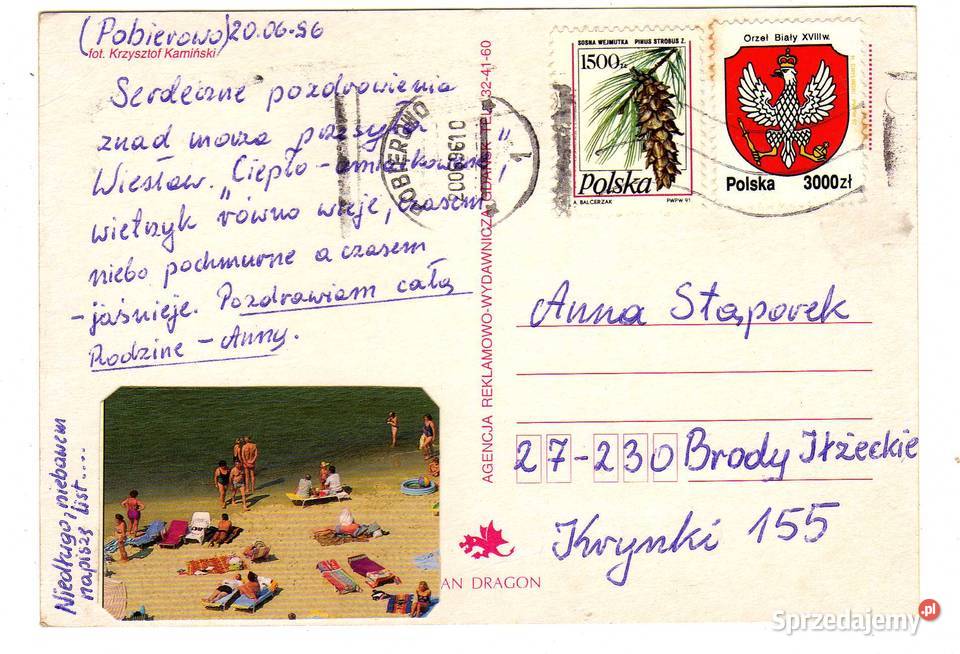 (Pobierowo) 20.06.96
fot. Krzysztof Kamiński
Serdeczne pozdrowienia
znad morza przesyła
Wiesław. "Ciepło-umiarkowane",
wietrzyk równo wieje, czasem
niebo pochmurne a czasem
-jaśnieje. Pozdrawiam całą
Rodzinę - Anny.
Niedługo, niebawem
napiszę list....
AGENCJA REKLAMOWO-WYDAWNICZA GDAŃSK TEL. 32-41-60
POBIEROWO
200696 10
1
SOSNA WEJMUTKA PINUS STROBUS Z.
1500 zł
Polska
A. BALCERZAK PWPW 91
Orzeł Biały XVIII w.
Polska 3000 zł
Anna Stąporek
27-230 Brody Iłżeckie
Krynki 155
AN DRAGON
Sprzedajemy.pl